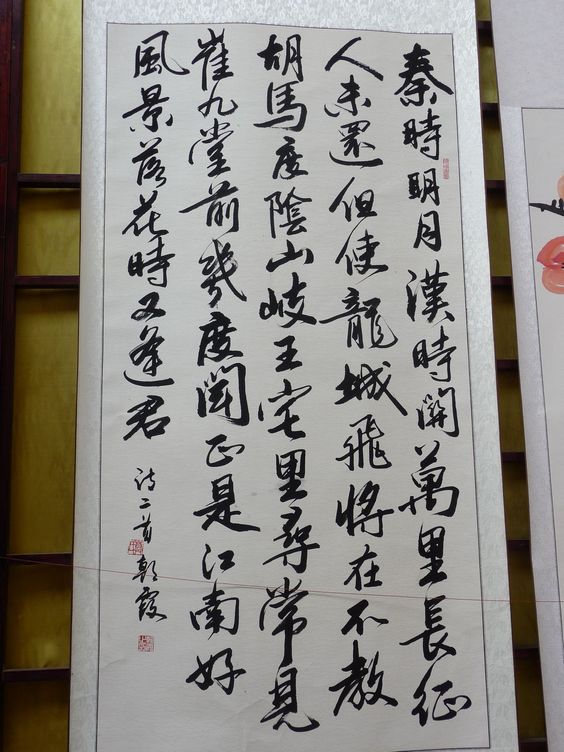 秦時明月漢時關萬里長征
人未還但使龍城飛將在不教
胡馬度陰山岐王宅里尋常見
崔九堂前幾度聞正是江南好
風景落花時又逢君
詩二首 朝霞